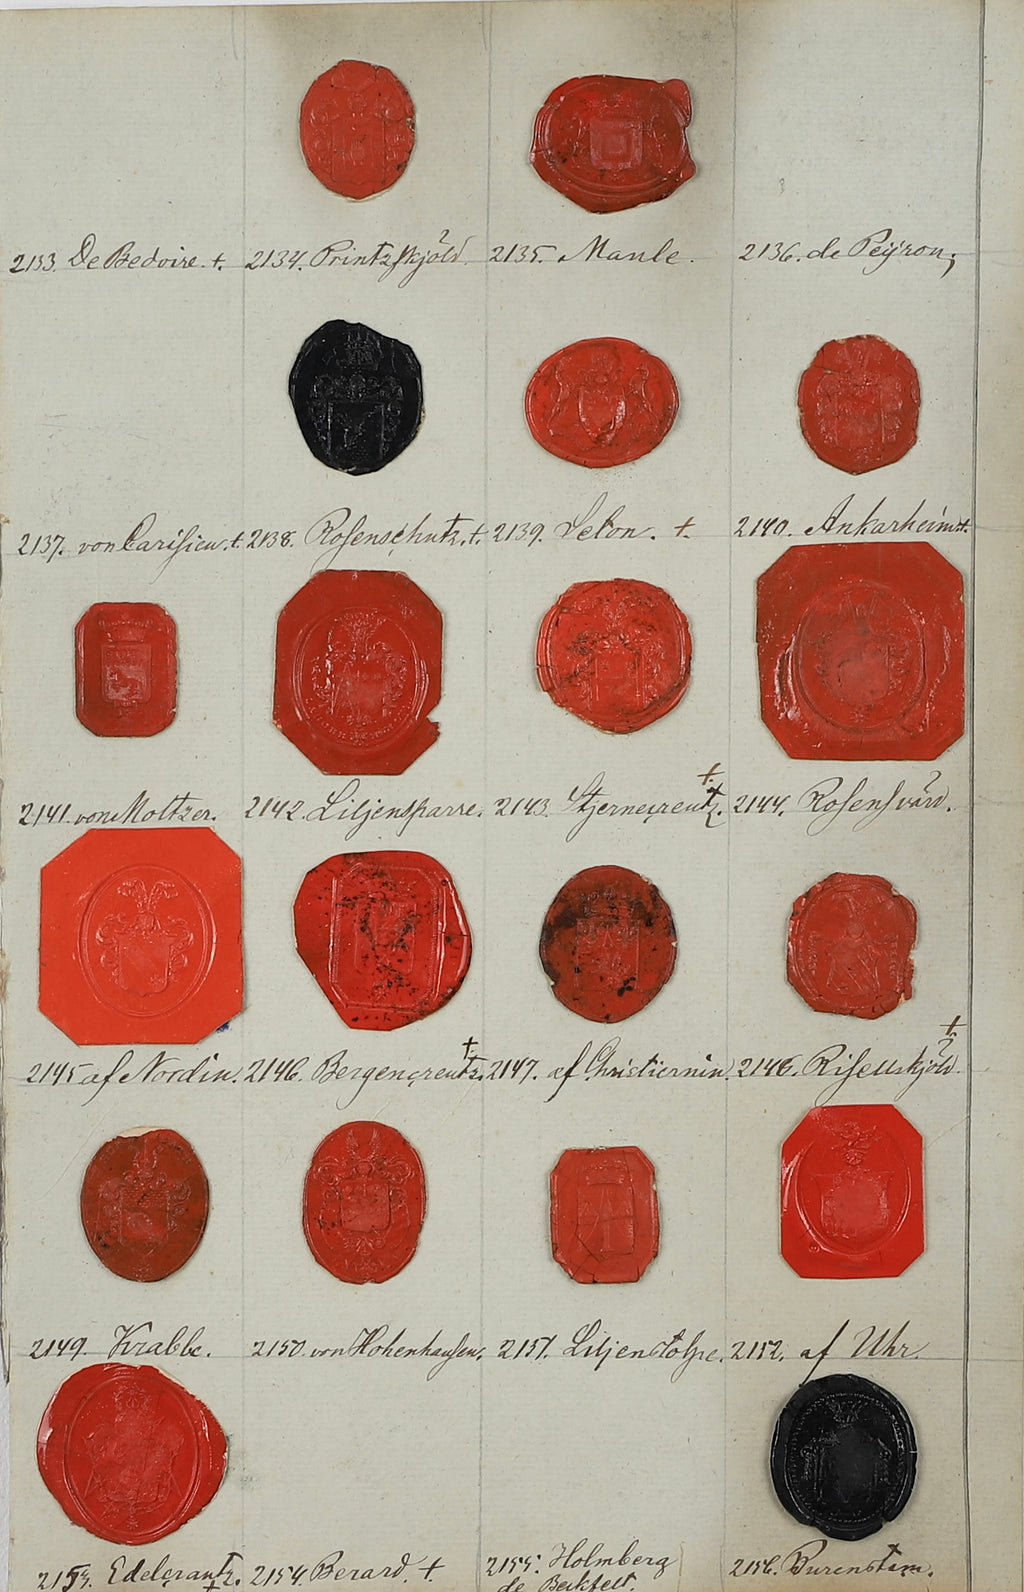 2133. De Bedoire. †. 2134. Printzskjöld 2135. Maule. 2136. de Peÿron,
2137. von Carisien. †. 2138. Rosenschutz. †. 2139. Seton. †. 2140. Ankarheim †.
2141. von Moltzer. 2142. Liljensparre. 2143. Stjernecreutz. † 2144. Rosensvärd.
2145 af Nordin. 2146. Bergencreutz. † 2147. af Christiernin. 2148. Riselskjöld. †
2149. Krabbe. 2150. von Hohenhausen. 2151. Liljenstolpe. 2152. af Uhr.
2153. Edelcrantz. † 2154. Berard. †. 2155. Holmberg 2156. Burenstam.
de Beckfelt.